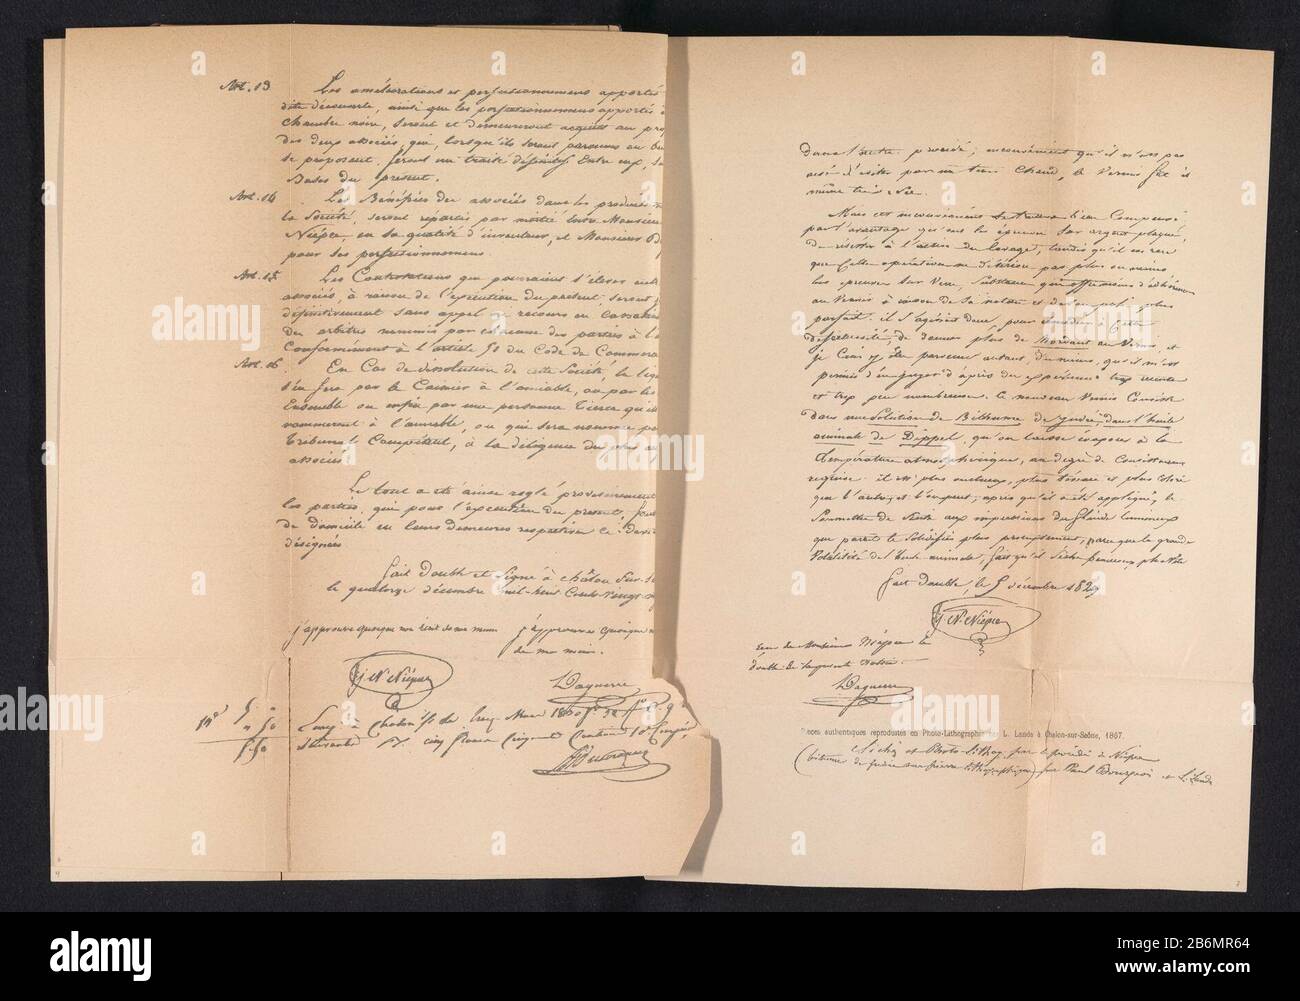 Art. 13 Les améliorations et perfectionnemens apportés
dite découverte, ainsi que les perfectionnemens apportés à
chambre noire, seront et demeureront acquis au pro
des deux associés, qui, lorsqu'ils seront parvenus au bu
se proposent, feront un traité définitif entre eux, su
Bases du présent.
Art. 14 Les Bénéfices des associés dans les produits
la Société, seront repartis par moitié entre Monsieur
Niépce, en sa qualité d'inventeur, et Monsieur D
pour ses perfectionnemens.
Art. 15 Les Contestations qui pourraient s'élever entre
associés, à raison de l'exécution du présent seront
définitivement sans appel ni recours en Cassation
des arbitres nommés par chacune des parties à l'a
Conformément à l'article 51 du Code de Commerce
Art. 16 En Cas de dissolution de cette Société, la liqu
s'en fera par le Caissier à l'amiable, ou par les
Ensemble ou enfin par une personne Tierce qu'il
nommeront à l'amiable, ou qui sera nommée pa
Tribunal Compétent, à la diligence du plus
associé.
Le tout a été ainsi réglé provisoirement
les parties, qui pour l'exécution du présent, font
de domicile en leurs demeures respectives ci-dess
désignées.
Fait Double et Signé à Châlon sur S
le quatorze décembre mil-huit Cents Vingt
j'approuve quoique non écrit de ma main
j'approuve quoique n
de ma main.
J. N. Niépce
Daguerre
Enreg. à Chalon s/s le treize Mars 1830 f° 32
cinq francs Cinquante Centimes
5 "
" 50
5.50
Ducorneau
dans l'autre procédé; inconvénient qu'il n'est pas
aisé d'éviter par un tems chaud, le vernis fût-il
même très-sec.
Mais cet inconvénient se trouve bien Compensé
par l'avantage qu'ont les épreuves sur argent plaqué,
de résister à l'action du lavage, tandis qu'il est rare
que Cette opération ne détériore pas plus ou moins
les épreuves sur Verre, Substance qui offre moins d'adhérence
au Vernis à raison de Sa nature et de son poli plus
parfait. il s'agissait donc, pour remédier à Cette
défectuosité, de donner plus de Mordant au Vernis, et
je Crois y être parvenu autant, du moins, qu'il m'est
permis d'en juger d'après des expériences trop récentes
et trop peu nombreuses. le nouveau Vernis Consiste
dans une Solution de Bithume de Judée, dans l'huile
animale de Dippel, qu'on laisse évaporer à la
Température atmosphérique, au degré de Consistance
requise. il est plus onctueux, plus tenace et plus Coloré
que l'autre, et l'on peut, après qu'il a été appliqué, le
Soumettre de suite aux impressions du fluide lumineux
qui paraît le Solidifier plus promptement, parce que la grande
Volatilité de l'huile animale, fait qu'il sèche beaucoup plus vite
fait double, le 5 décembre 1829
J. N. Niépce
reçu de Monsieur Niépce le
double
Daguerre
èces authentiques reproduites en Photo-Lithographie par L. Landa à Chalon-sur-Saône, 1867.
Cliché et Photo-Lithog. par le procédé de Niépce
(bitume de judée sur pierre lithographique) par Paul Bourgeois et L. Landa
a
alamy
Image ID: 2B6MR64
www.alamy.com